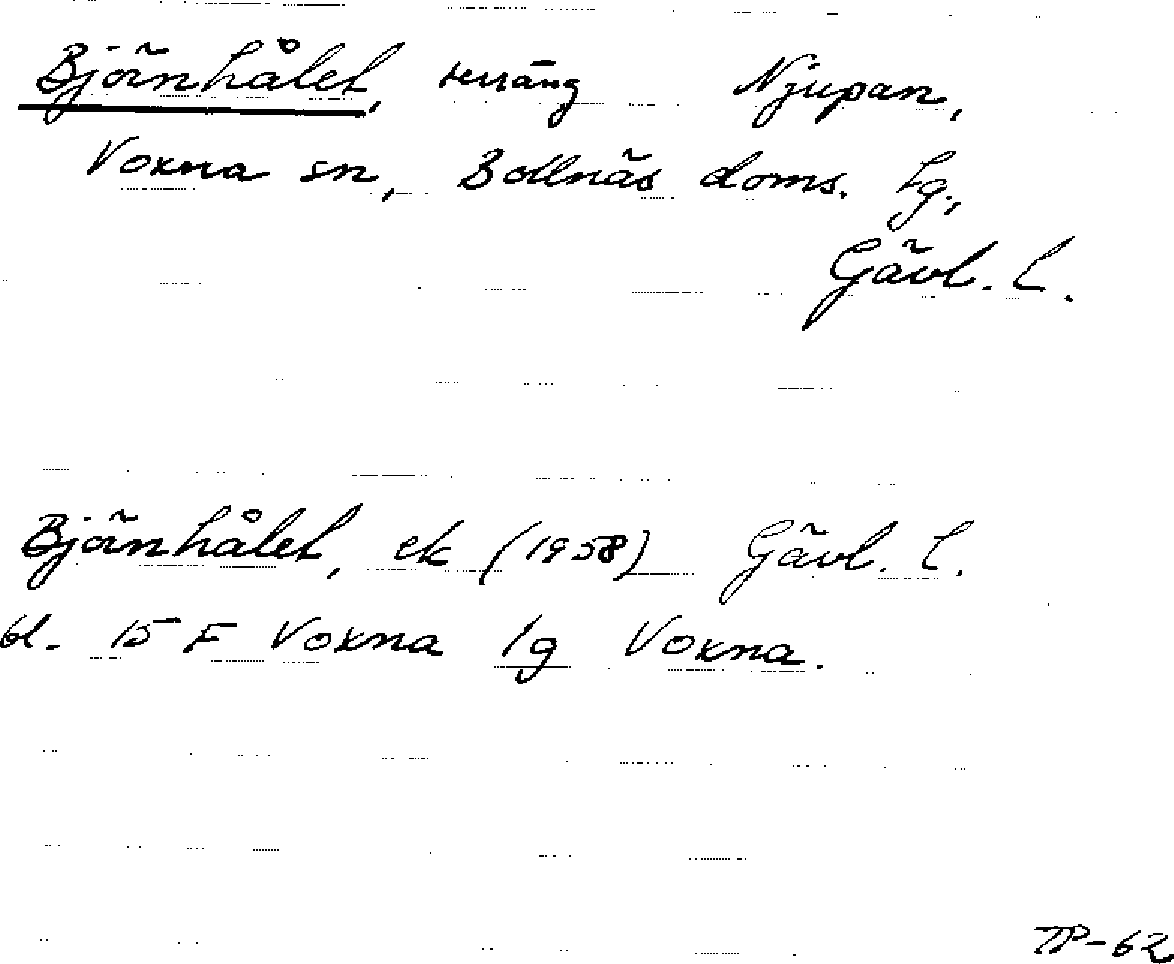 Björnhålet, terräng Njupan,
Voxna sn, Bollnäs doms. lg,
Gävl. l.
Björnhålet, ek (1958) Gävl. l.
bl. 15 F Voxna 1g Voxna.
TP-62